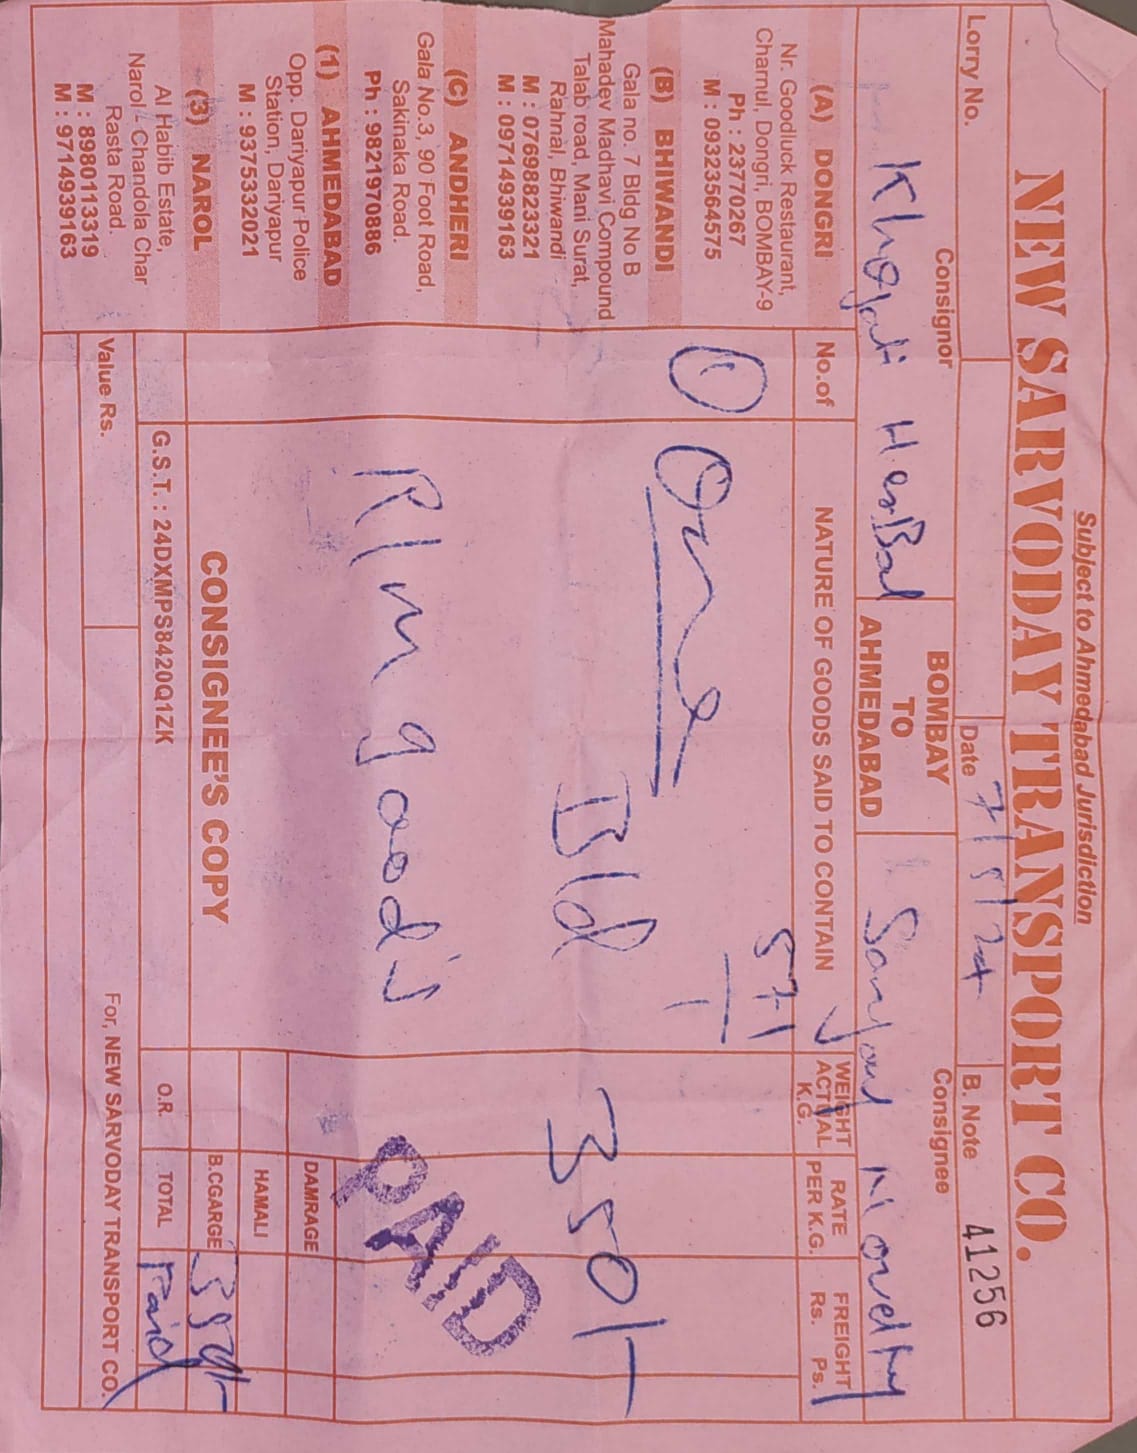 Subject to Ahmedabad Jurisdiction
NEW SARVODAY TRANSPORT CO.
Lorry No.
Date 7/5/24
B. Note 41256
Consignor
BOMBAY
TO
AHMEDABAD
Consignee
HerBal
Novelty
(A) DONGRI
Nr. Goodluck Restaurant,
Charnul, Dongri, BOMBAY-9
Ph : 23770267
M : 09323564575
(B) BHIWANDI
Gala no. 7 Bldg No B
Mahadev Madhavi Compound
Talab road, Mani Surat,
Rahnal, Bhiwandi
M : 07698823321
M : 09714939163
(C) ANDHERI
Gala No.3, 90 Foot Road,
Sakinaka Road.
Ph : 9821970886
(1) AHMEDABAD
Opp. Dariyapur Police
Station, Dariyapur
M : 9375332021
(3) NAROL
Al Habib Estate,
Narol - Chandola Char
Rasta Road.
M : 8980113319
M : 9714939163
No.of
NATURE OF GOODS SAID TO CONTAIN
WEIGHT
ACTUAL
K.G.
RATE
PER K.G.
FREIGHT
Rs. Ps.
One
Bld
350/-
R/m good's
PAID
DAMRAGE
HAMALI
B.CGARGE
CONSIGNEE'S COPY
G.S.T. : 24DXMPS8420Q1ZK
O.R.
TOTAL
Paid
Value Rs.
For, NEW SARVODAY TRANSPORT CO.